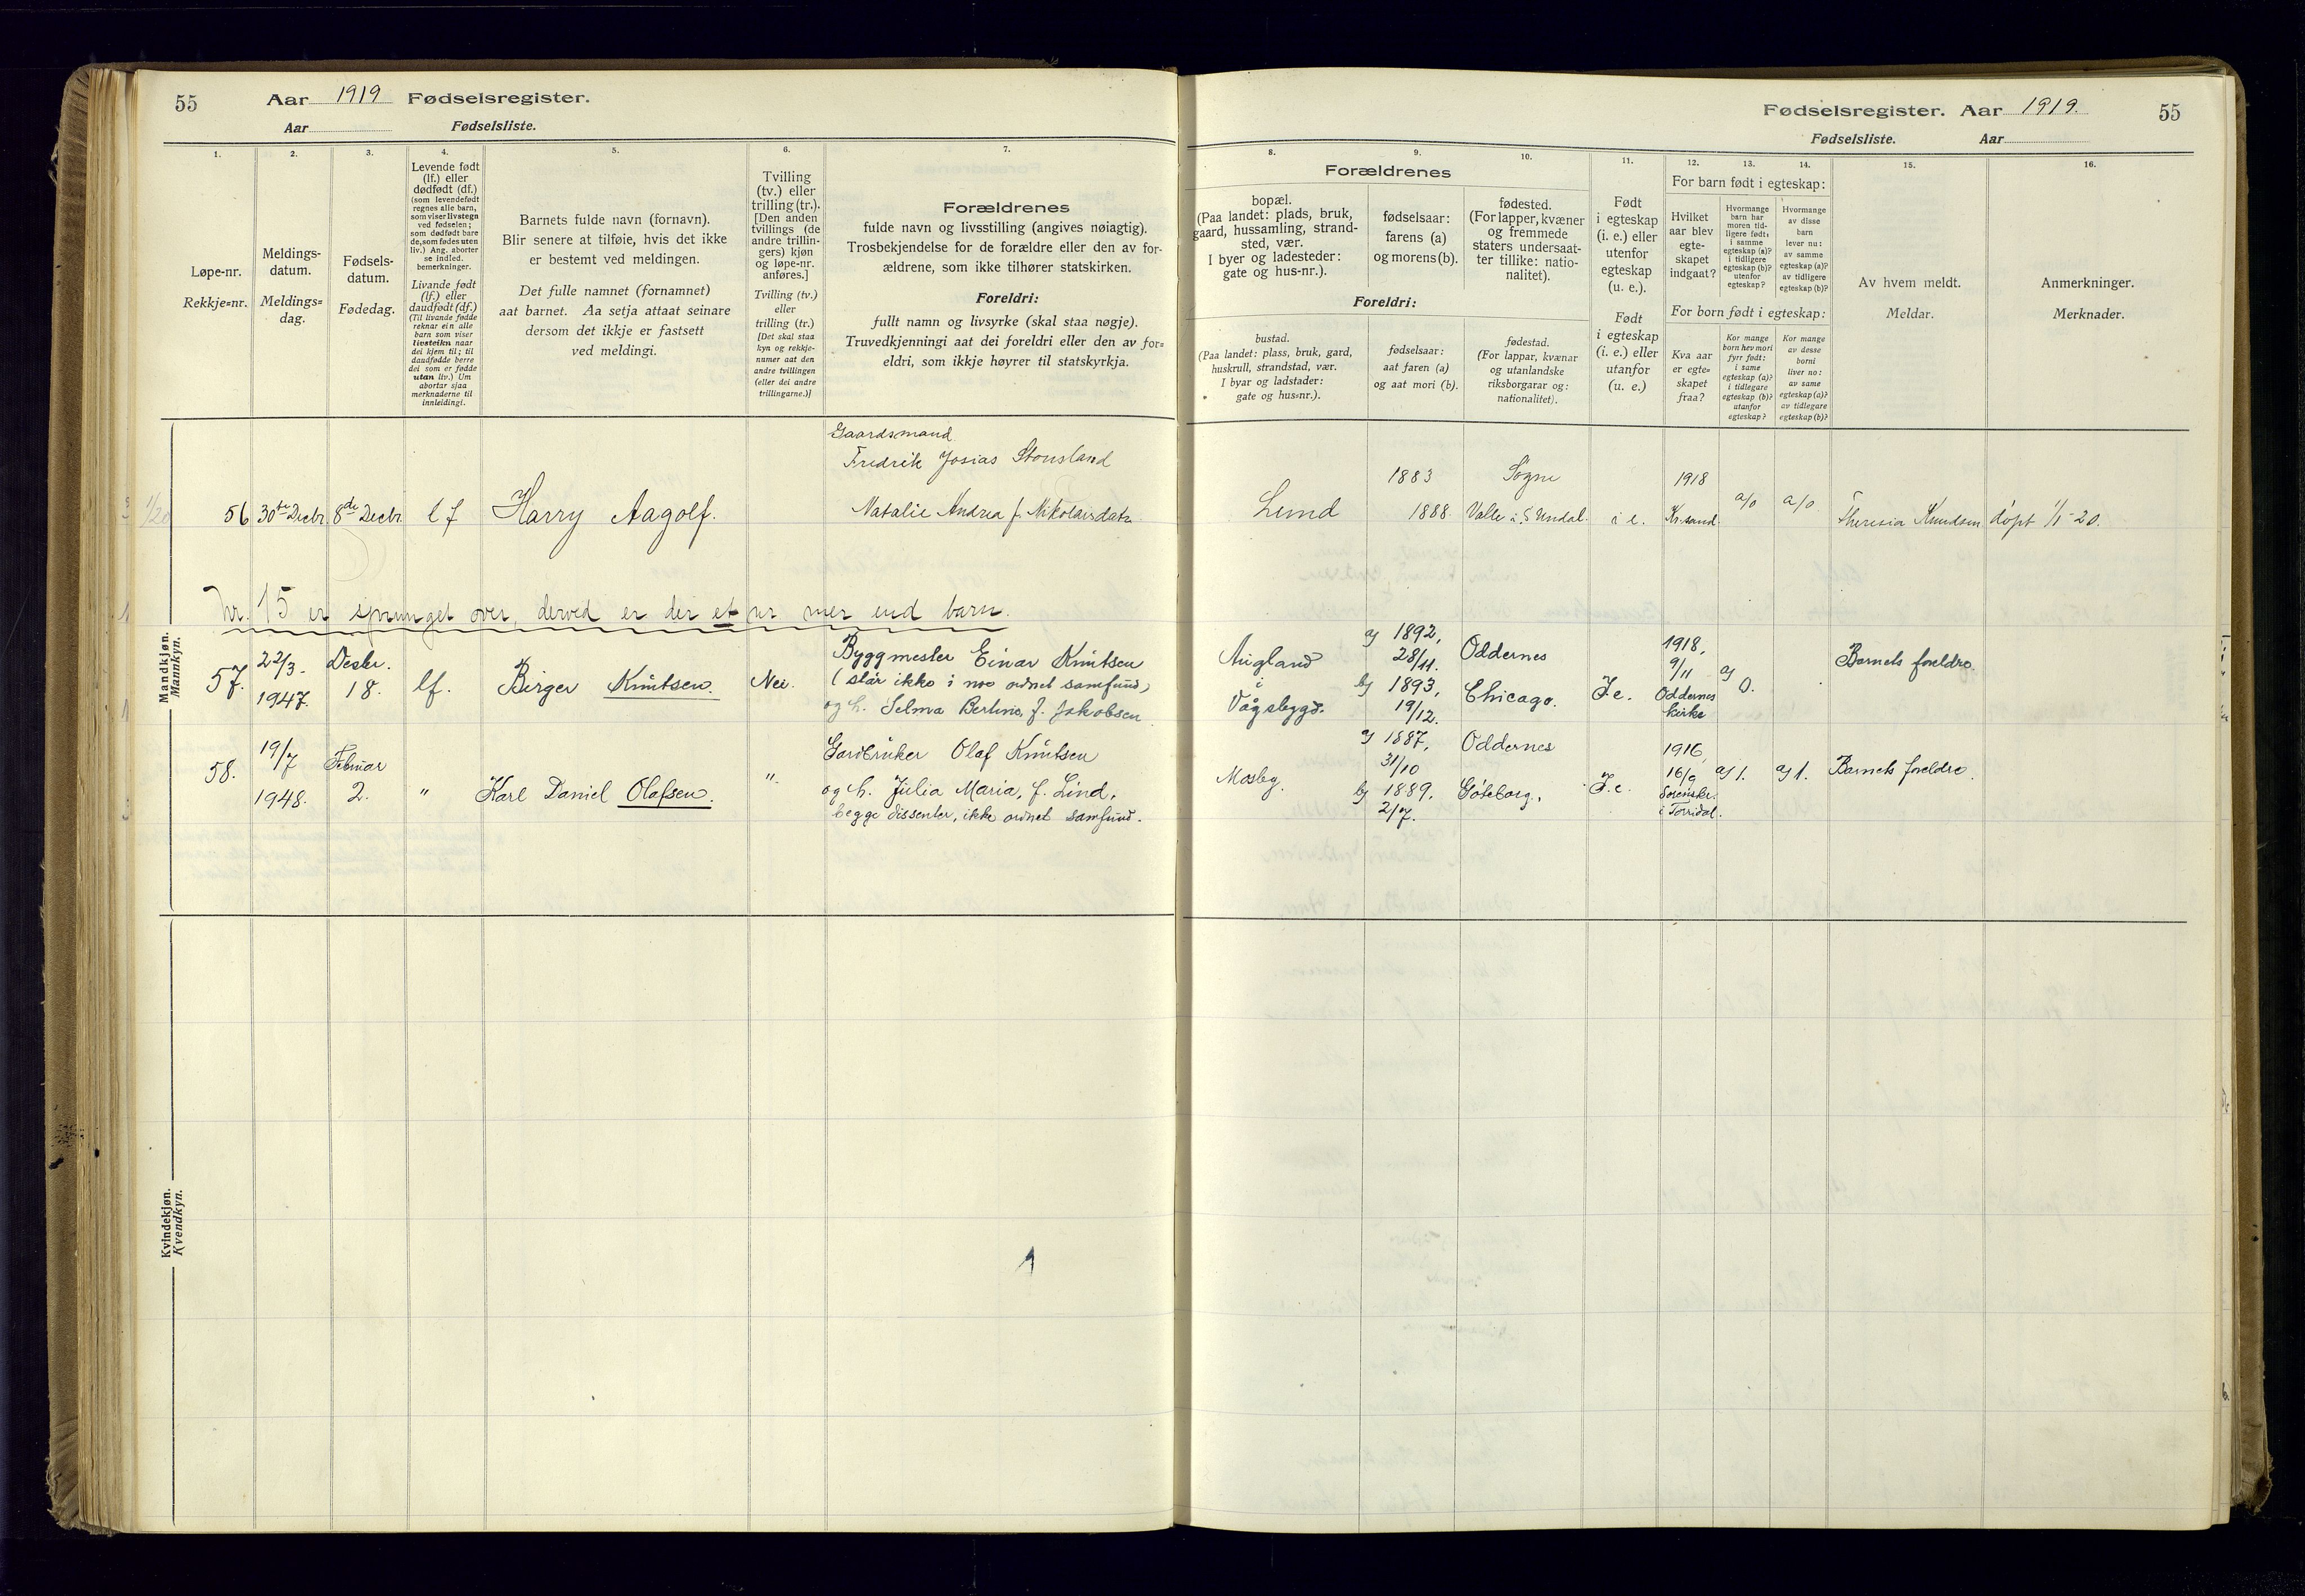 55 Aar 1919 Fødselsregister.
Aar Fødselsliste.
1. 2. 3. 4. 5. 6. 7.
Løpe-nr.
Rekkje=nr.
Meldings-
datum.
Meldings=
dag.
Fødsels-
datum.
Fødedag.
Levende født
(lf.) eller
dødfødt (df.)
(som levendefødt
regnes alle barn,
som viser livstegn
ved fødselen;
som dødfødt bare
de, som fødes uten
liv.) Ang. aborter
se indled.
bemerkninger.
Livande født
(lf.) eller
daudfødt (df.)
(Til livande fødde
reknar ein alle
barn som viser
livsteikn naar
dei kjem til; til
daudfødde berre
dei som er fødde
utan liv.) Um
abortar sjaa
merknaderne til
innleidingi.
Barnets fulde navn (fornavn).
Blir senere at tilføie, hvis det ikke
er bestemt ved meldingen.
Det fulle namnet (fornamnet)
aat barnet. Aa setja attaat seinare
dersom det ikkje er fastsett
ved meldingi.
Tvilling
(tv.) eller
trilling (tr.).
[Den anden
tvillings (de
andre trillin-
gers) kjøn
og løpe-nr.
anføres.]
Tvilling (tv.)
eller
trilling (tr.)
[Det skal staa
kyn og rekkje-
nummer aat den
andre tvillingen
(eller dei andre
trillingarne.)]
Forældrenes
fulde navn og livsstilling (angives nøiagtig).
Trosbekjendelse for de forældre eller den av for-
ældrene, som ikke tilhører statskirken.
Foreldri:
fullt namn og livsyrke (skal staa nøgje).
Truvedkjenningi aat dei foreldri eller den av for=
eldri, som ikkje høyrer til statskyrkja.
Mandkjøn.
Mannkyn.
Gaardsmand
Fredrik Josias Stousland
1/20 56 30te Decbr. 8de Decbr. lf Harry Aagolf. Natalie Andrea f. Nikolaisdatr.
Nr. 15 er sprunget over, derved er der et nr mer end barn.
57. 22/3. 1947. Desbr. 18. lf. Birger Knutsen. Nei.
Byggmester Einar Knutsen
(står ikke i noe ordnet samfund)
og h. Selma Berline, f. Jakobsen.
58. 19/7 1948. Februar 2. " Karl Daniel Olafsen. "
Gardbruker Olaf Knutsen
og h. Julia Maria, f. Lind,
begge dissenter, ikke ordnet samfund.
Kvindekjøn.
Kvendkyn.
Fødselsregister. Aar 1919. 55
Fødselsliste. Aar
8. 9. 10. 11. 12. 13. 14. 15. 16.
Forældrenes
bopæl.
(Paa landet: plads, bruk,
gaard, hussamling, strand-
sted, vær.
I byer og ladesteder:
gate og hus-nr.).
fødselsaar:
farens (a)
og morens (b).
fødested.
(For lapper, kvæner
og fremmede
staters undersaat-
ter tillike: natio-
nalitet).
Foreldri:
bustad.
(Paa landet: plass, bruk, gard,
huskrull, strandstad, vær.
I byar og ladstader:
gate og hus=nr.).
fødselsaar:
aat faren (a)
og aat mori (b).
fødestad.
(For lappar, kvænar
og utanlandske
riksborgarar og:
nationalitet).
Født
i egteskap
(i. e.) eller
utenfor
egteskap
(u. e.).
Født
i egteskap
(i. e.) eller
utanfor
(u. e.)
For barn født i egteskap:
Hvilket
aar blev
egte-
skapet
indgaat?
Hvormange
barn har
moren tid-
ligere født,
i samme
egteskap (a)?
i tidligere
egteskap (b)?
utenfor
egteskap?
Hvormange
av disse
barn
lever nu:
av samme
egteskap (a)?
av tidligere
egteskap (b)?
For born født i egteskap:
Kva aar
er egte=
skapet
fraa?
Kor mange
born hev mori
fyrr født:
i same
egteskap (a)?
i tidlegare
egteskap (b)?
utanfor
egteskap?
Kor mange
av desse
borni
liver no:
av same
egteskap (a)?
av tidlegare
egteskap (b)?
Av hvem meldt.
Meldar.
Anmerkninger.
Merknader.
1883 Søgne 1918
Lund 1888. Valle i S. Undal. i e. Kr.sand. a/o a/o Theresia Knudsen døpt 1/1-20.
Augland
i
Vågsbygd.
a) 1892,
28/11.
b) 1893,
19/12.
Oddernes
Chicago.
I.e.
1918,
9/11
Oddernes
kirke
a)
0.
Barnets foreldre.
Mosby.
a) 1887,
31/10
b) 1889.
2/7.
Oddernes
Göteborg.
I.e.
1916,
16/9
Sorenskr.
i Torridal.
a) 1. a) 1. Barnets foreldre.